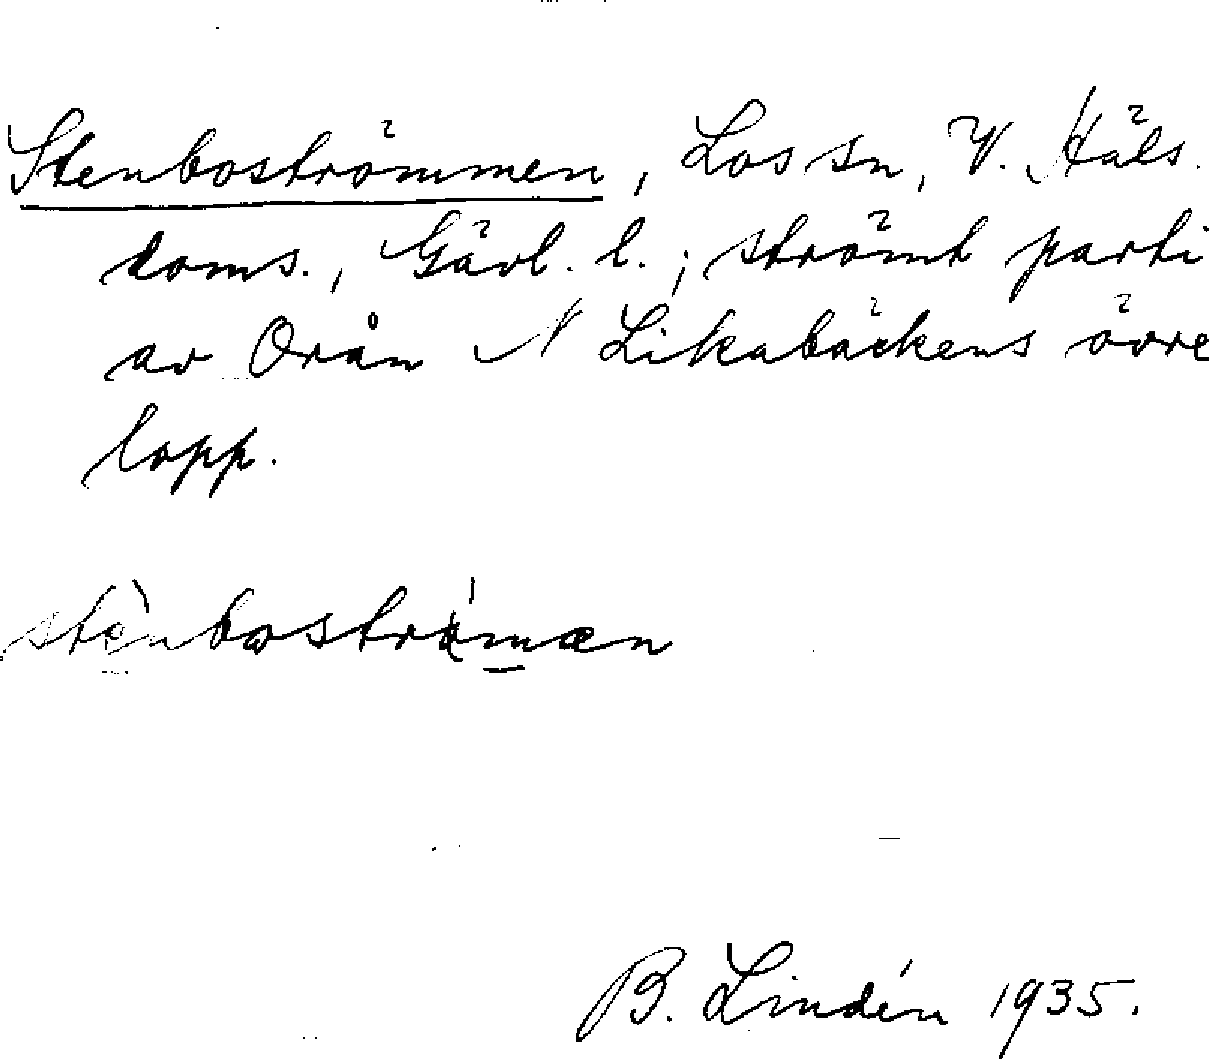 Stenboströmmen, Los sn, V. Häls.
doms., Gävl. l.; strömt parti
av Orån N Likabäckens övre
lopp.
B. Lindén 1935.